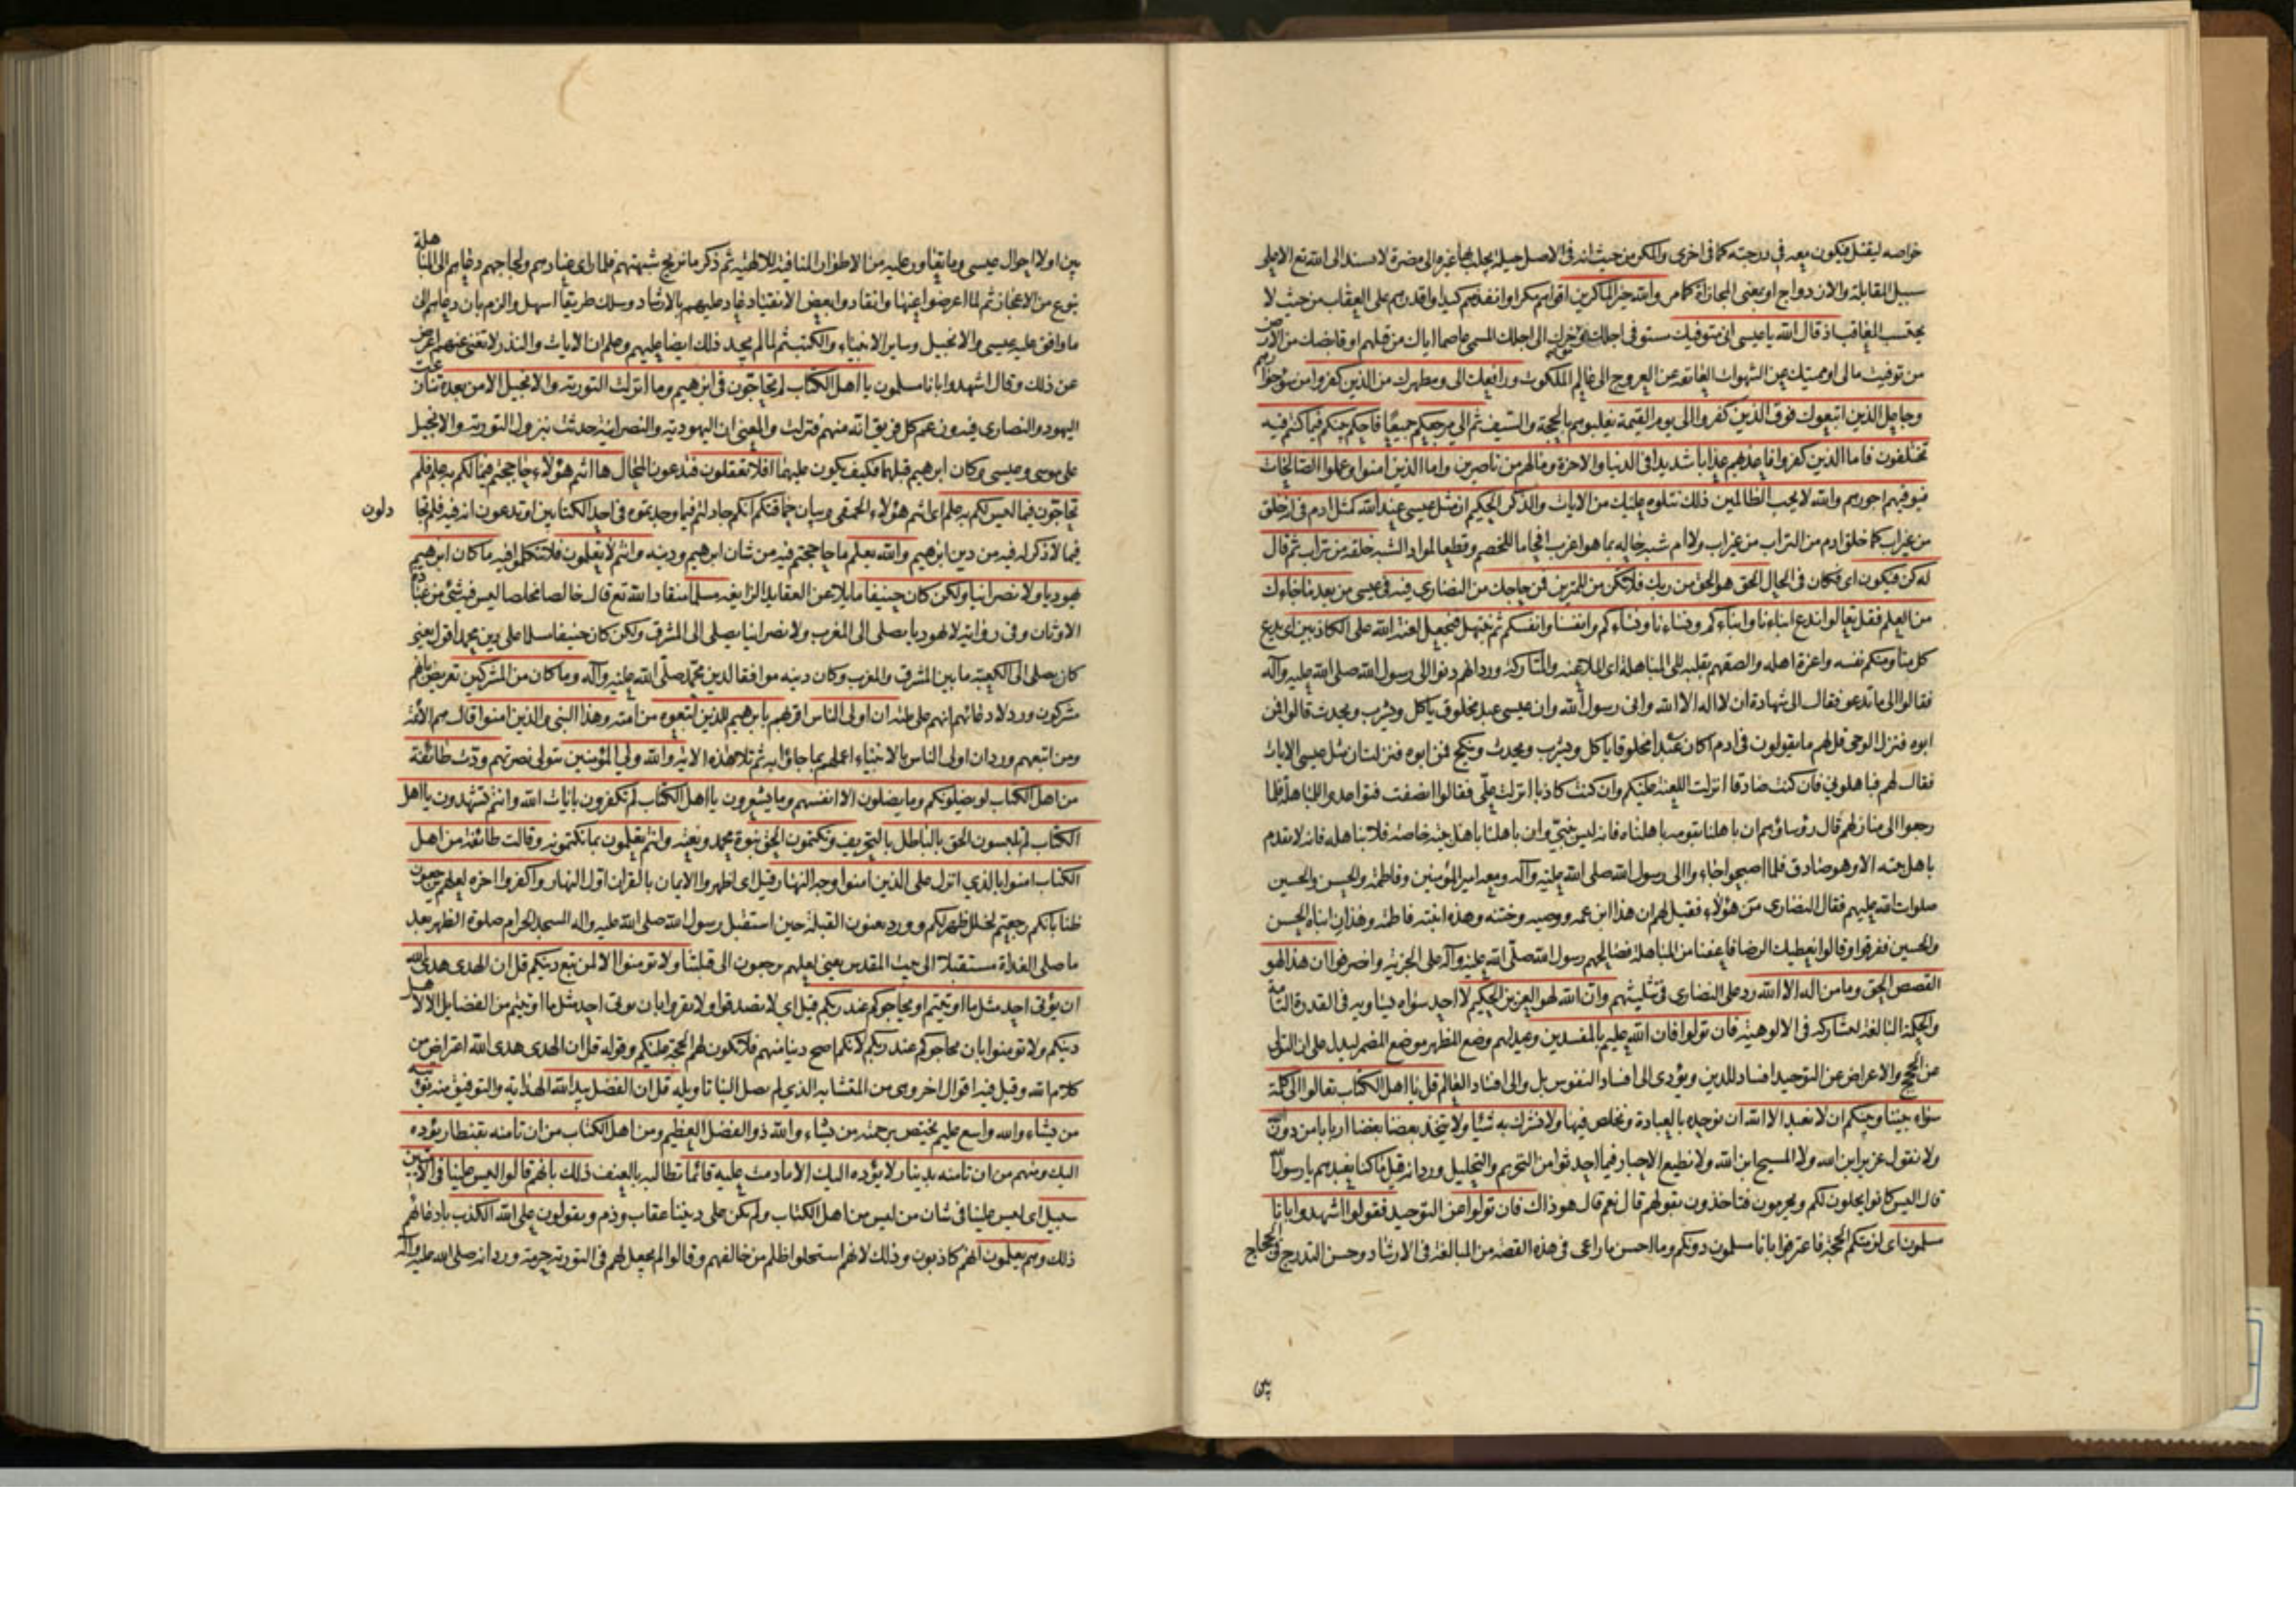 خواصه ليقتل فيكون معه في درجته كما في اخرى والمكر من حيث انه في الاصل حيلة يجلب بها غيره الى مضرة لا يسند الى الله تع الا على
سبيل المقابلة والازدواج او بمعنى المجازاة كما مر والله خير الماكرين اقواهم مكرا وانفذهم كيدا واقدرهم على العقاب من حيث لا
يحتسب المعاقب اذ قال الله يا عيسى انى متوفيك مستوفى اجلك ومؤخرك الى اجلك المسمى عاصما اياك من قتلهم او قابضك من الارض
من توفيت مالى او مميتك عن الشهوات العائقة عن العروج الى عالم الملكوت ورافعك الى ومطهرك من الذين كفروا من سوء جوارهم
وجاعل الذين اتبعوك فوق الذين كفروا الى يوم القيمة يغلبونهم بالحجة والسيف ثم الى مرجعكم جميعا فاحكم بينكم فيما كنتم فيه
تختلفون فاما الذين كفروا فاعذبهم عذابا شديدا في الدنيا والاخرة وما لهم من ناصرين واما الذين امنوا وعملوا الصالحات
فيوفيهم اجورهم والله لا يحب الظالمين ذلك نتلوه عليك من الايات والذكر الحكيم ان مثل عيسى عند الله كمثل ادم في ان خلق
من غير اب كما خلق ادم من التراب من غير اب ولا ام شبه حاله بما هو اغرب افحاما للخصم وقطعا لمواد الشبه خلقه من تراب ثم قال
له كن فيكون اى فكان في الحال الحق هو الحق من ربك فلا تكن من الممترين فمن حاجك من النصارى فيه في عيسى من بعد ما جاءك
من العلم فقل تعالوا ندع ابناءنا وابناءكم ونساءنا ونساءكم وانفسنا وانفسكم ثم نبتهل فنجعل لعنة الله على الكاذبين اى يدع
كل منا ومنكم نفسه واعزة اهله والصقهم بقلبه الى المباهلة اى الملاعنة والمتاركة ورد انهم دنوا الى رسول الله صلى الله عليه وآله
فقالوا الى ما تدعو فقال الى شهادة ان لا اله الا الله وانى رسول الله وان عيسى عبد مخلوق ياكل ويشرب ويحدث قالوا فمن
ابوه فنزل الوحى قل لهم ما يقولون في ادم اكان عبدا مخلوقا ياكل ويشرب ويحدث وينكح فمن ابوه فنزلت ان مثل عيسى الايات
فقال لهم فباهلونى فان كنت صادقا انزلت اللعنة عليكم وان كنت كاذبا انزلت على فقالوا انصفت فتواعدوا للمباهلة فلما
رجعوا الى منازلهم قال رؤساؤهم ان باهلنا بقومه باهلناه فانه ليس بنبى وان باهلنا باهل بيته خاصة فلا نباهله فانه لا يقدم
باهل بيته الا وهو صادق فلما اصبحوا جاءوا الى رسول الله صلى الله عليه وآله ومعه امير المؤمنين وفاطمة والحسن والحسين
صلوات الله عليهم فقال النصارى من هؤلاء فقيل لهم ان هذا ابن عمه ووصيه وختنه وهذه ابنته فاطمة وهذان ابناه الحسن
والحسين ففرقوا وقالوا نعطيك الرضا فاعفنا من المباهلة فصالحهم رسول الله صلى الله عليه وآله على الجزية وانصرفوا ان هذا لهو
القصص الحق وما من اله الا الله رد على النصارى في تثليثهم وان الله لهو العزيز الحكيم لا احد سواه يساويه في القدرة التامة
والحكمة البالغة ليشاركه في الالوهية فان تولوا فان الله عليم بالمفسدين وعيد لهم وضع المظهر موضع المضمر ليدل على ان التولى
عن الحجج والاعراض عن التوحيد افساد للدين ويؤدى الى افساد النفوس بل والى افساد العالم قل يا اهل الكتاب تعالوا الى كلمة
سواء بيننا وبينكم ان لا نعبد الا الله ان نوحده بالعبادة ونخلص فيها ولا نشرك به شيئا ولا يتخذ بعضنا بعضا اربابا من دون الله
ولا نقول عزير ابن الله ولا المسيح ابن الله ولا نطيع الاحبار فيما احدثوا من التحريم والتحليل ورد انه قيل ما كنا نعبدهم يا رسول الله
قال اليس كانوا يحلون لكم ويحرمون فتاخذون بقولهم قال نعم قال هو ذاك فان تولوا عن التوحيد فقولوا اشهدوا بانا
مسلمون اى لزمتكم الحجة فاعترفوا بانا مسلمون دونكم وما احسن ما راعى في هذه القصة من المبالغة في الارشاد وحسن التدرج في الحجاج
بين اولا احوال عيسى وما يتعاور عليه من الاطوار المنافية للالهية ثم ذكر ما يزيح شبهتهم فلما راى عنادهم ولجاجهم دعاهم الى المباهلة
بنوع من الاعجاز ثم لما اعرضوا عنها وانقادوا بعض الانقياد عاد عليهم بالارشاد وسلك طريقا اسهل والزم بان دعاهم الى
ما وافق عليه عيسى والانجيل وساير الانبياء والكتب ثم لما لم يجد ذلك ايضا عليهم وعلم ان الايات والنذر لا تغنى عنهم اعرض
عن ذلك وقال اشهدوا بانا مسلمون يا اهل الكتاب لم تحاجون في ابرهيم وما انزلت التورية والانجيل الا من بعده تنازعت
اليهود والنصارى فيه وزعم كل فريق انه منهم فنزلت والمعنى ان اليهودية والنصرانية حدثت بنزول التورية والانجيل
على موسى وعيسى وكان ابرهيم قبلهما فكيف يكون عليهما افلا تعقلون فتدعون المحال ها انتم هؤلاء حاججتم فيما لكم به علم فلم
تحاجون فيما ليس لكم به علم اى انتم هؤلاء الحمقى وبيان حماقتكم انكم جادلتم فيما وجدتموه في احد الكتابين او تدعون انه فيه فلم تجادلون
فيما لا ذكر له فيه من دين ابرهيم والله يعلم ما حاججتم فيه من شان ابرهيم ودينه وانتم لا تعلمون فلا تتكلموا فيه ما كان ابرهيم
يهوديا ولا نصرانيا ولكن كان حنيفا مايلا عن العقايد الزايغة مسلما منقادا لله تع قال خالصا مخلصا ليس فيه شئ من عبادة
الاوثان وفى رواية لا يهوديا يصلى الى المغرب ولا نصرانيا يصلى الى المشرق ولكن كان حنيفا مسلما على دين محمد اقول يعنى
كان يصلى الى الكعبة ما بين المشرق والمغرب وكان دينه موافقا لدين محمد صلى الله عليه وآله وما كان من المشركين تعريض بانهم
مشركون ورد لادعائهم انهم على ملته ان اولى الناس اقربهم بابرهيم للذين اتبعوه من امته وهذا النبى والذين امنوا قال هم الائمة
ومن اتبعهم ورد ان اولى الناس بالانبياء اعملهم بما جاؤا به ثم تلا هذه الاية والله ولى المؤمنين يتولى نصرتهم ودت طائفة
من اهل الكتاب لو يضلونكم وما يضلون الا انفسهم وما يشعرون يا اهل الكتاب لم تكفرون بايات الله وانتم تشهدون يا اهل
الكتاب لم تلبسون الحق بالباطل بالتحريف وتكتمون الحق نبوة محمد ونعته وانتم تعلمون بما تكتمونه وقالت طائفة من اهل
الكتاب امنوا بالذى انزل على الذين امنوا وجه النهار قيل اى اظهروا الايمان بالقران اول النهار واكفروا اخره لعلهم يرجعون
ظنا بانكم رجعتم لخلل ظهر لكم وورد يعنون القبلة حين استقبل رسول الله صلى الله عليه واله المسجد الحرام صلوة الظهر بعد
ما صلى الغداة مستقبلا الى بيت المقدس يعنى لعلهم يرجعون الى قبلتنا ولا تومنوا الا لمن تبع دينكم قل ان الهدى هدى الله
ان يؤتى احد مثل ما اوتيتم او يحاجوكم عند ربكم قيل اى لا تصدقوا ولا تقروا بان يوتى احد مثل ما اوتيتم من الفضايل الا لاهل
دينكم ولا تومنوا بان يحاجوكم عند ربكم لانكم اصح دينا منهم فلا تكون لهم الحجة عليكم وقوله قل ان الهدى هدى الله اعتراض من
كلام الله وقيل فيه اقوال اخر وهى من المتشابه الذى لم يصل الينا تاويله قل ان الفضل بيد الله الهداية والتوفيق منه يؤتيه
من يشاء والله واسع عليم يختص برحمته من يشاء والله ذو الفضل العظيم ومن اهل الكتاب من ان تامنه بقنطار يؤده
اليك ومنهم من ان تامنه بدينار لا يؤده اليك الا ما دمت عليه قائما تطالبه بالعنف ذلك بانهم قالوا ليس علينا في الاميين
سبيل اى ليس علينا في شان من ليس من اهل الكتاب ولم يكن على ديننا عقاب وذم ويقولون على الله الكذب بادعائهم
ذلك وهم يعلمون انهم كاذبون وذلك لانهم استحلوا ظلم من خالفهم وقالوا لم يجعل لهم في التورية حرمة ورد انه صلى الله عليه وآله